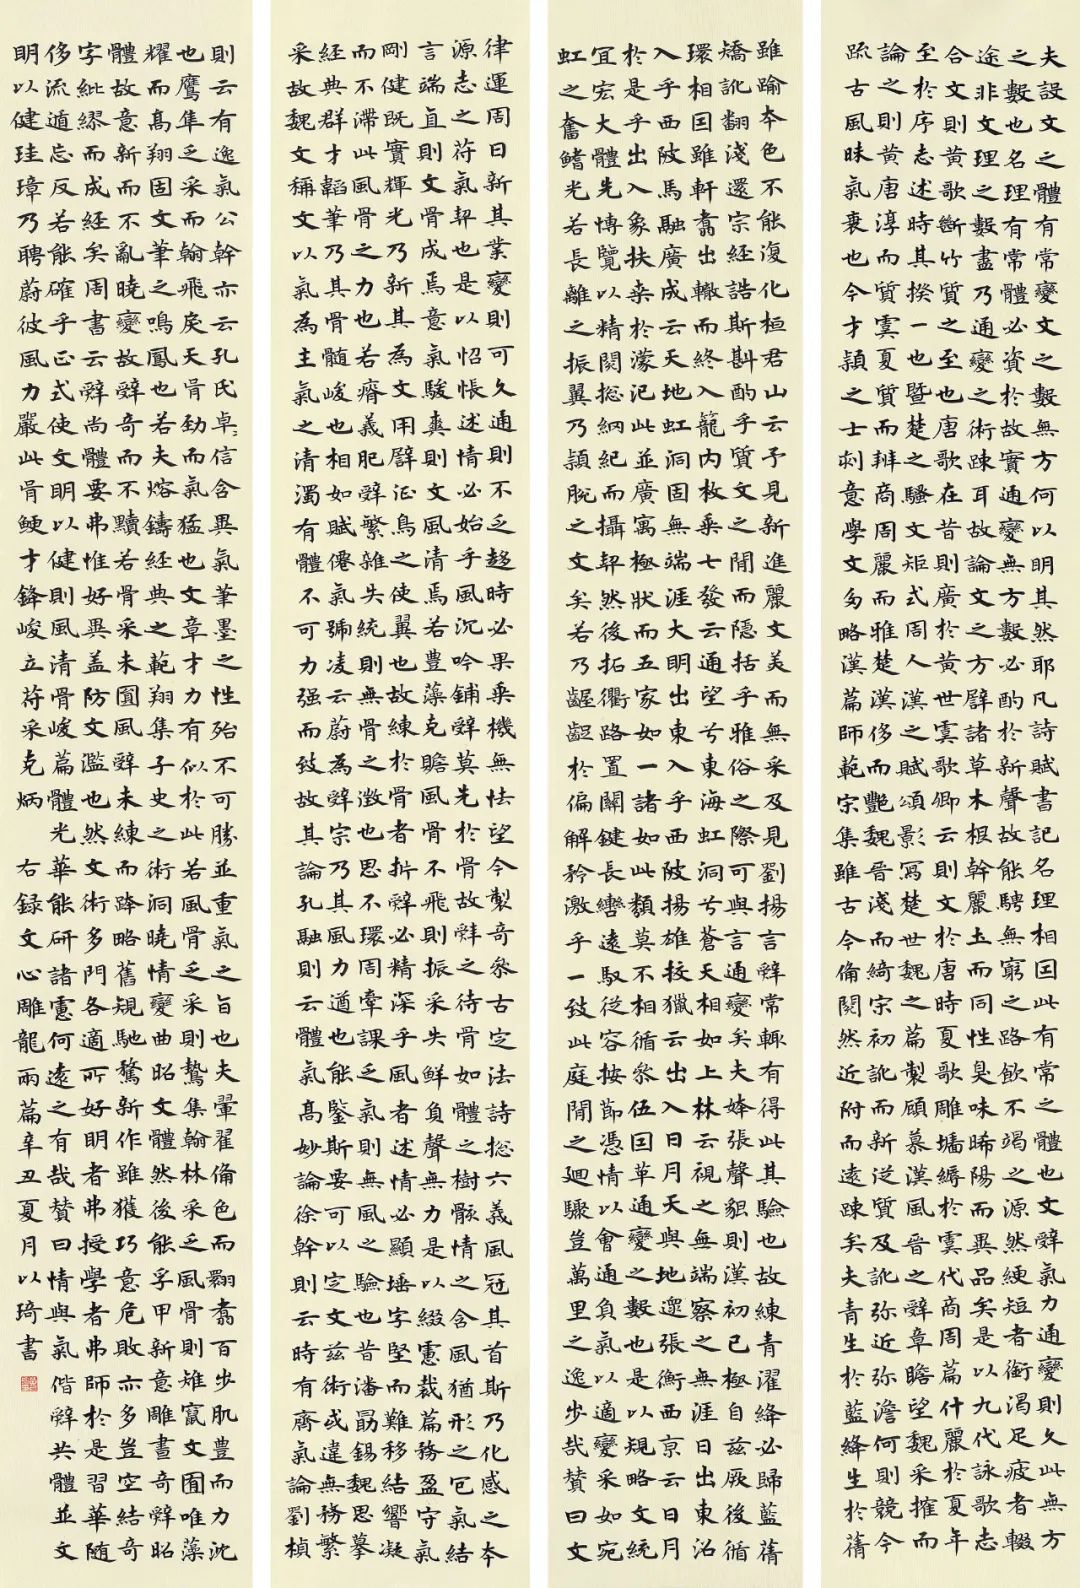 夫設文之體有常變文之數無方何以明其然耶凡詩賦書記名理相因此有常之體也文辭氣力通變則久此無方
之數也名理有常體必資於故實通變無方數必酌於新聲故能騁無窮之路飲不竭之源然綆短者銜渴足疲者輟
途非文理之數盡乃通變之術疎耳故論文之方譬諸草木根幹麗土而同性臭味晞陽而異品矣是以九代詠歌志
合文則黃歌斷竹質之至也唐歌在昔則廣於黃世虞歌卿云則文於唐時夏歌雕墻縟於虞代商周篇什麗於夏年
至於序志述時其揆一也暨楚之騷文矩式周人漢之賦頌影寫楚世魏之篇製顧慕漢風晉之辭章瞻望魏采搉而
論之則黃唐淳而質虞夏質而辨商周麗而雅楚漢侈而艷魏晉淺而綺宋初訛而新從質及訛彌近彌澹何則競今
疏古風昧氣衰也今才穎之士刻意學文多略漢篇師範宋集雖古今備閱然近附而遠疎矣夫青生於藍絳生於蒨
雖踰本色不能復化桓君山云予見新進麗文美而無采及見劉揚言辭常輒有得此其驗也故練青濯絳必歸藍蒨
矯訛翻淺還宗經誥斯斟酌乎質文之間而隱括乎雅俗之際可與言通變矣夫夸張聲貌則漢初已極自茲厥後循
環相因雖軒翥出轍而終入籠內枚乘七發云通望兮東海虹洞兮蒼天相如上林云視之無端察之無涯日出東沼
入乎西陂馬融廣成云天地虹洞固無端涯大明出東入乎西陂揚雄校獵云出入日月天與地邐張衡西京云日月
於是乎出入象扶桑於濛汜此並廣寓極狀而五家如一諸如此類莫不相循參伍因革通變之數也是以規略文統
宜宏大體先博覽以精閱總綱紀而攝契然後拓衢路置關鍵長轡遠馭從容按節憑情以會通負氣以適變采如宛
虹之奮鰭光若長離之振翼乃穎脫之文矣若乃齷齪於偏解矜激乎一致此庭間之迴驟豈萬里之逸步哉贊曰文
律運周日新其業變則可久通則不乏趨時必果乘機無怯望今製奇參古定法詩總六義風冠其首斯乃化感之本
源志之符氣契也是以怊悵述情必始乎風沉吟鋪辭莫先於骨故辭之待骨如體之樹骸情之含風猶形之包氣結
言端直則文骨成焉意氣駿爽則文風清焉若豐藻克贍風骨不飛則振采失鮮負聲無力是以綴慮裁篇務盈守氣
剛健既實輝光乃新其為文用譬征鳥之使翼也故練於骨者析辭必精深乎風者述情必顯墻字堅而難移結響凝
而不滯此風骨之力也若瘠義肥辭繁雜失統則無骨之徵也思不環周牽課乏氣則無風之驗也昔潘勗錫魏思摹
經典群才韜筆乃其骨髓峻也相如賦僊氣號凌云蔚為辭宗乃其風力遒也能鑒斯要可以定文茲術或違無務繁
采故魏文稱文以氣為主氣之清濁有體不可力强而致故其論孔融則云體氣高妙論徐幹則云時有齊氣論劉楨
則云有逸氣公幹亦云孔氏卓〻信含異氣筆墨之性殆不可勝並重氣之旨也夫翬翟備色而翾翥百步肌豐而力沈
也鷹隼乏采而翰飛戾天骨勁而氣猛也文章才力有似於此若風骨乏采則鷙集翰林采乏風骨則雉竄文囿唯藻
耀而高翔固文筆之鳴鳳也若夫熔鑄經典之範翔集子史之術洞曉情變曲昭文體然後能孚甲新意雕畫奇辭昭
體故意新而不亂曉變故辭奇而不黷若骨采未圓風辭未練而跨略舊規馳騖新作雖獲巧意危敗亦多豈空結奇
字紕繆而成經矣周書云辭尚體要弗惟好異蓋防文濫也然文術多門各適所好明者弗授學者弗師於是習華隨
侈流遁忘反若能確乎正式使文明以健則風清骨峻篇體光華能研諸慮何遠之有哉贊曰情與氣偕辭共體並文
明以健珪璋乃聘蔚彼風力嚴此骨鯁才鋒峻立符采克炳
右錄文心雕龍兩篇辛丑夏月以琦書